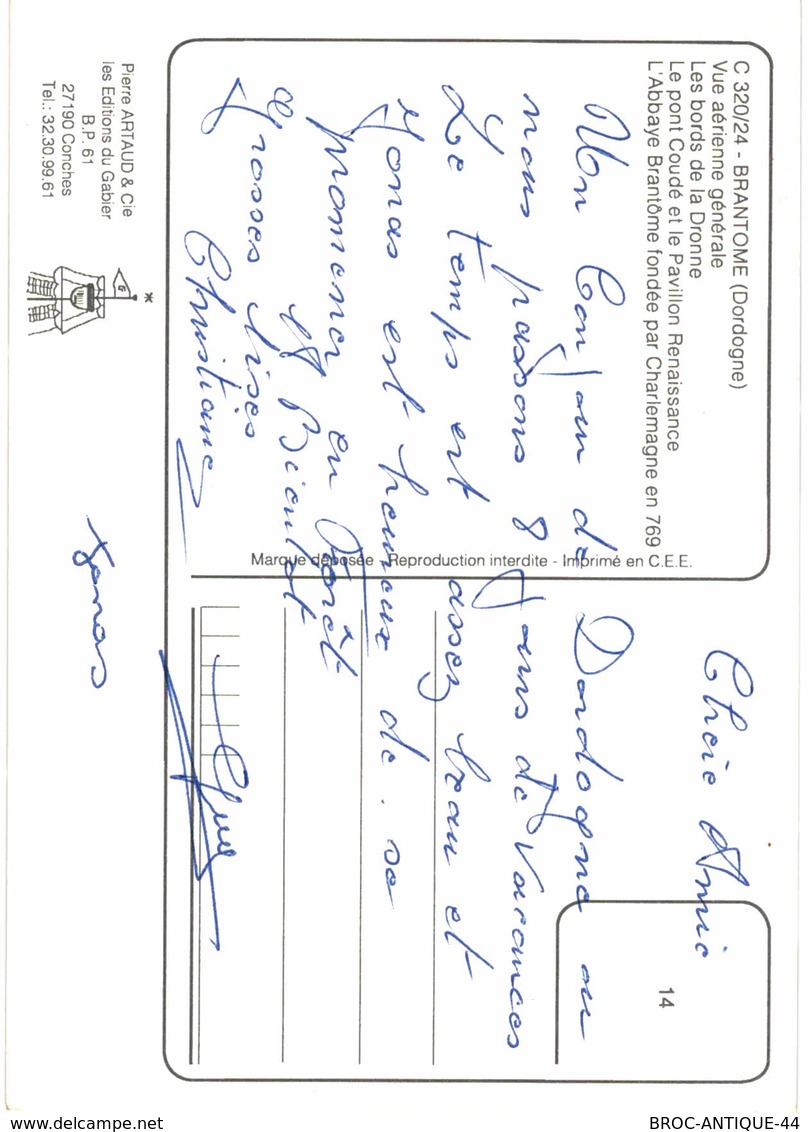 C 320/24 - BRANTOME (Dordogne)
Vue aérienne générale
Les bords de la Dronne
Le pont Coudé et le Pavillon Renaissance
L'Abbaye Brantôme fondée par Charlemagne en 769
14
Chère Amie
Un Bonjour de Dordogne ou
nous passons 8 jours de Vacances
Le temps est assez beau et
Jonas est heureux de se
promener en Forêt
et
Grosses Bises
Christiane
Jonas
Marque déposée - Reproduction interdite - Imprimé en C.E.E.
Pierre ARTAUD & Cie
les Editions du Gabier
B.P. 61
27190 Conches
Tel.: 32.30.99.61
*
G
www.delcampe.net
BROC-ANTIQUE-44